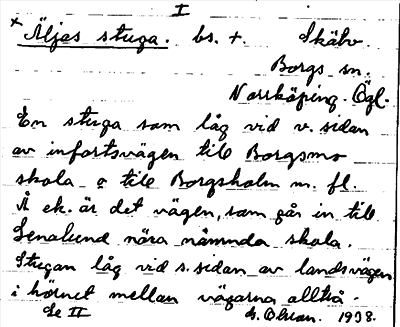 I
× Äljas stuga. bs. +. Skäbv.
Borgs sn.
Norrköping. Ögl.
En stuga som låg vid v. sidan
av infartsvägen till Borgsmo
skola o till Borgsholm m. fl.
Å ek. är det vägen, som går in till
Lenalund nära nämnda skola.
Stugan låg vid s. sidan av landsvägen
i hörnet mellan vägarna alltså.
Se II
G. Olson. 1938.